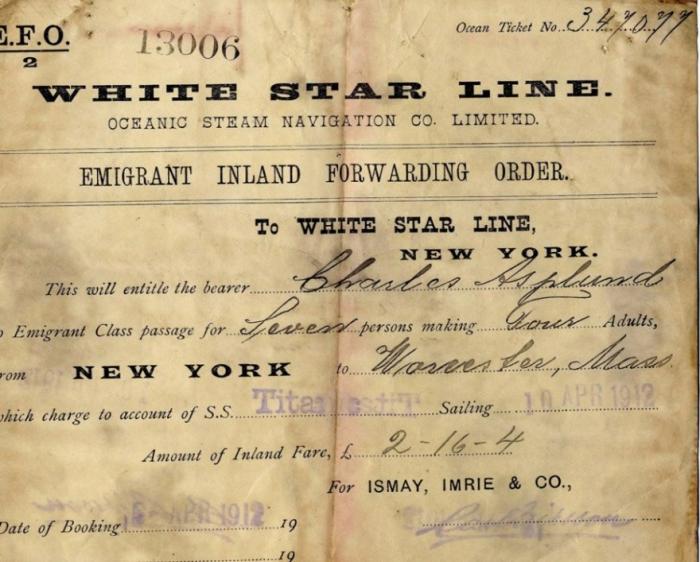 E.F.O. 13006 Ocean Ticket No. 347077
2
WHITE STAR LINE.
OCEANIC STEAM NAVIGATION CO. LIMITED.
EMIGRANT INLAND FORWARDING ORDER.
To WHITE STAR LINE,
NEW YORK.
This will entitle the bearer Charles Asplund
o Emigrant Class passage for Seven persons making Four Adults,
rom NEW YORK to Worcester, Mass.
which charge to account of S.S. Titanic Sailing 10 APR 1912
Amount of Inland Fare, £ 2-16-4
For ISMAY, IMRIE & CO.,
Date of Booking APR 1912 19
19